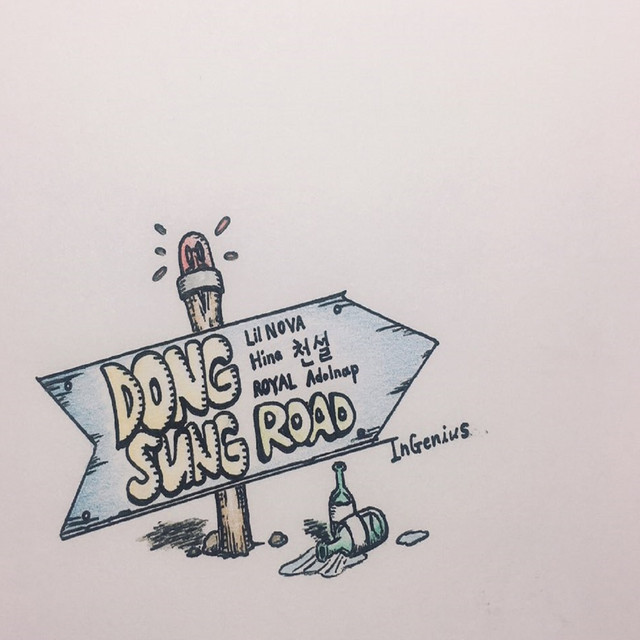 DONG
SUNG ROAD
Lil NOVA
Hina 천설
ROYAL Adolnap
InGenius